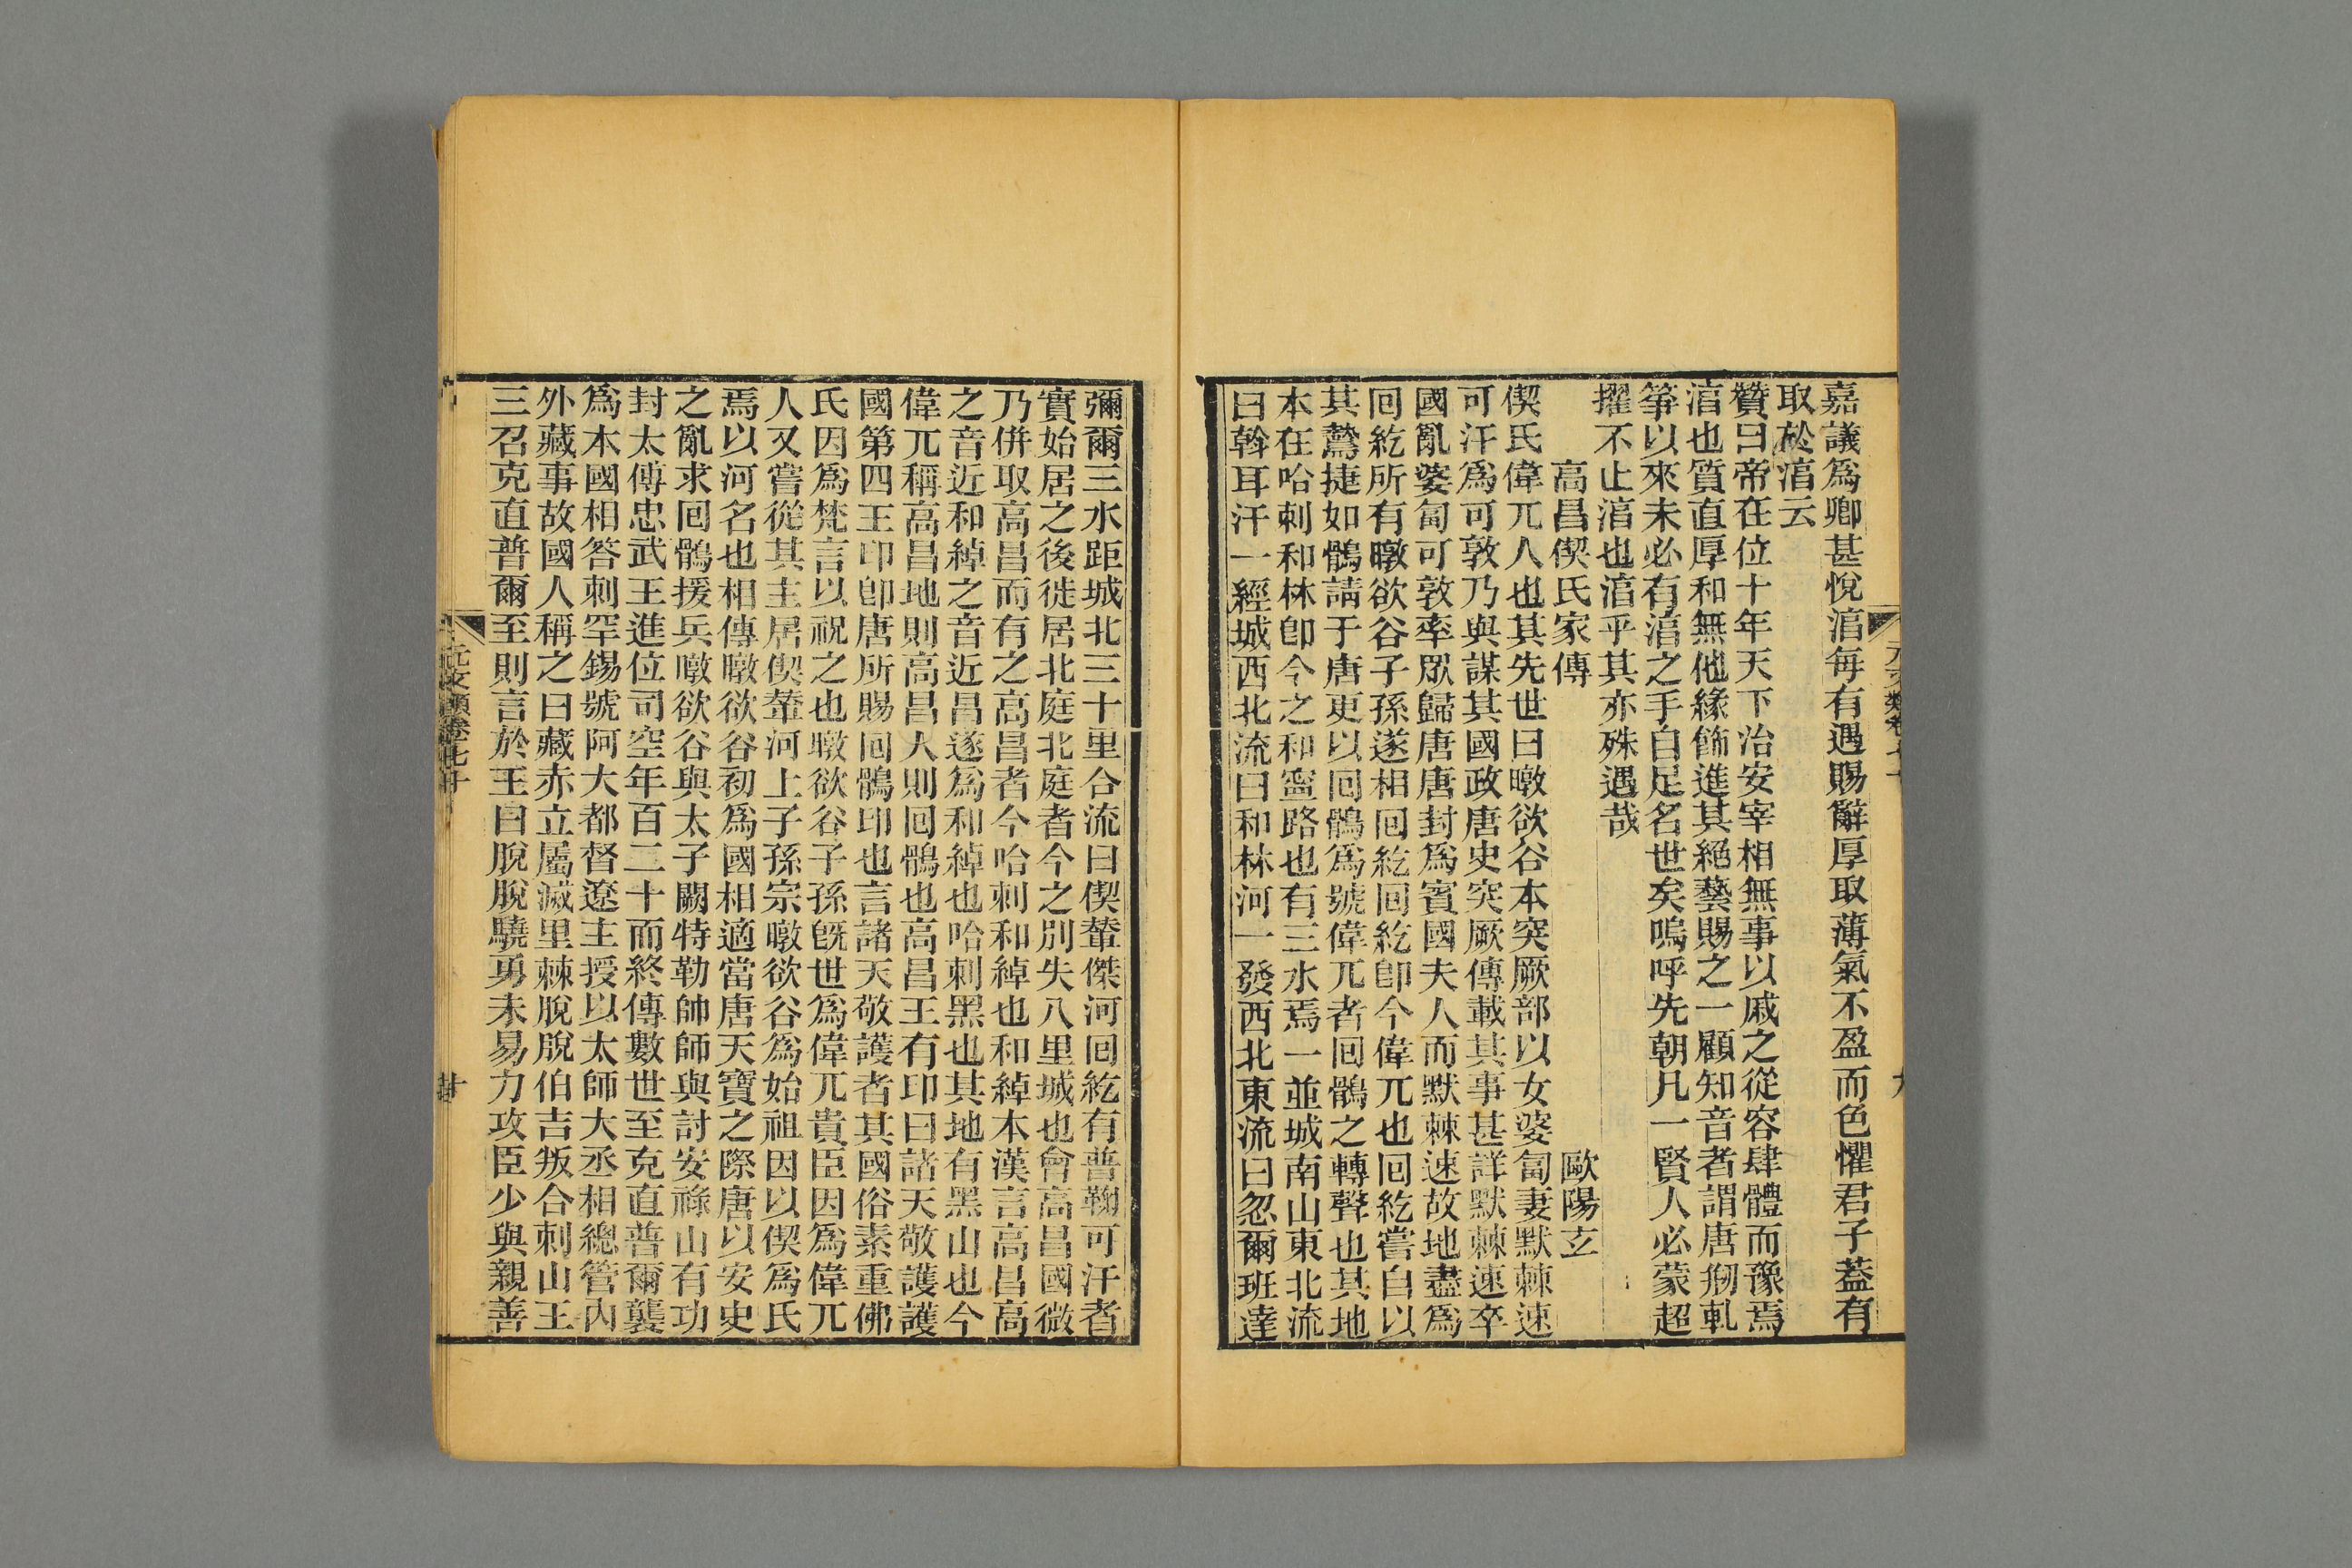 嘉議爲卿甚悅涫每有遇賜辭厚取薄氣不盈而色懼君子葢有
取於涫云
贊曰帝在位十年天下治安宰相無事以戚之從容肆體而豫焉
涫也質直厚和無他緣飾進其絕藝賜之一顧知音者謂唐剏軋
箏以來未必有涫之手自足名世矣嗚呼先朝凡一賢人必蒙超
擢不止涫也涫乎其亦殊遇哉
高昌偰氏家傳
歐陽玄
偰氏偉兀人也其先世曰暾欲谷本突厥部以女婆匐妻默棘速
可汗爲可敦乃與謀其國政唐史突厥傳載其事甚詳默棘速卒
國亂婆匐可敦率眾歸唐唐封爲賓國夫人而默棘速故地盡爲
回紇所有暾欲谷子孫遂相回紇回紇卽今偉兀也回紇嘗自以
其鷙捷如鶻請于唐更以回鶻爲號偉兀者回鶻之轉聲也其地
本在哈剌和林卽今之和寧路也有三水焉一並城南山東北流
曰斡耳汗一經城西北流曰和林河一發西北東流曰忽爾班達
彌爾三水距城北三十里合流曰偰輦傑河回紇有普鞠可汗者
實始居之後徙居北庭北庭者今之別失八里城也會高昌國微
乃併取高昌而有之高昌者今哈剌和綽也和綽本漢言高昌高
之音近和綽之音近昌遂爲和綽也哈剌黑也其地有黑山也今
偉兀稱高昌地則高昌人則回鶻也高昌王有印曰諸天敬護護
國第四王印卽唐所賜回鶻印也言諸天敬護者其國俗素重佛
氏因爲梵言以祝之也暾欲谷子孫旣世爲偉兀貴臣因爲偉兀
人又嘗從其主居偰輦河上子孫宗暾欲谷爲始祖因以偰爲氏
焉以河名也相傳暾欲谷初爲國相適當唐天寶之際唐以安史
之亂求回鶻援兵暾欲谷與太子闕特勒帥師與討安祿山有功
封太傅忠武王進位司空年百二十而終傳數世至克直普爾襲
爲本國相答剌罕錫號阿大都督遼主授以太師大丞相總管內
外藏事故國人稱之曰藏赤立屬滅里棘脫脫伯吉叛合剌山王
三召克直普爾至則言於王曰脫脫驍勇未易力攻臣少與親善
元文類卷七十